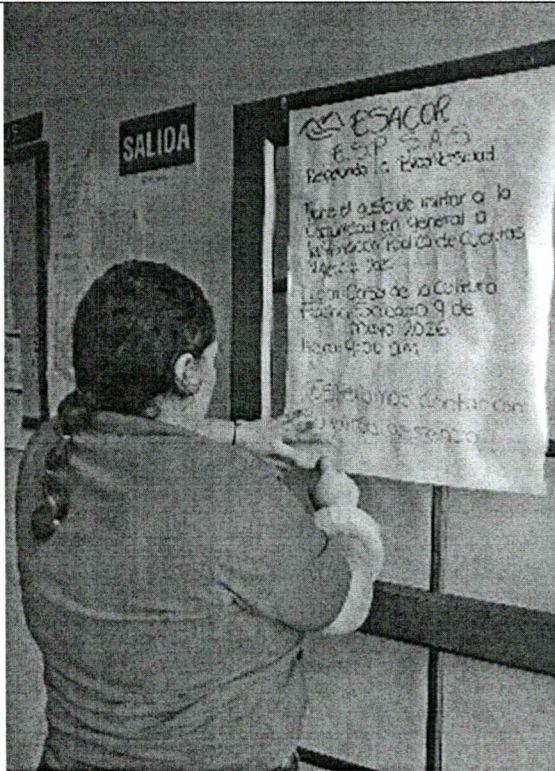 SALIDA
ESACOR
E.S.P S.A.S
la Biodiversidad
Tiene el gusto de invitar a la
Comunidad en General a
la Rendición Pública de Cuentas
Lugar: Casa de la Cultura
Fecha: Sábado 9 de
Mayo 2026
Hora: 9:00 am
Esperamos contar con